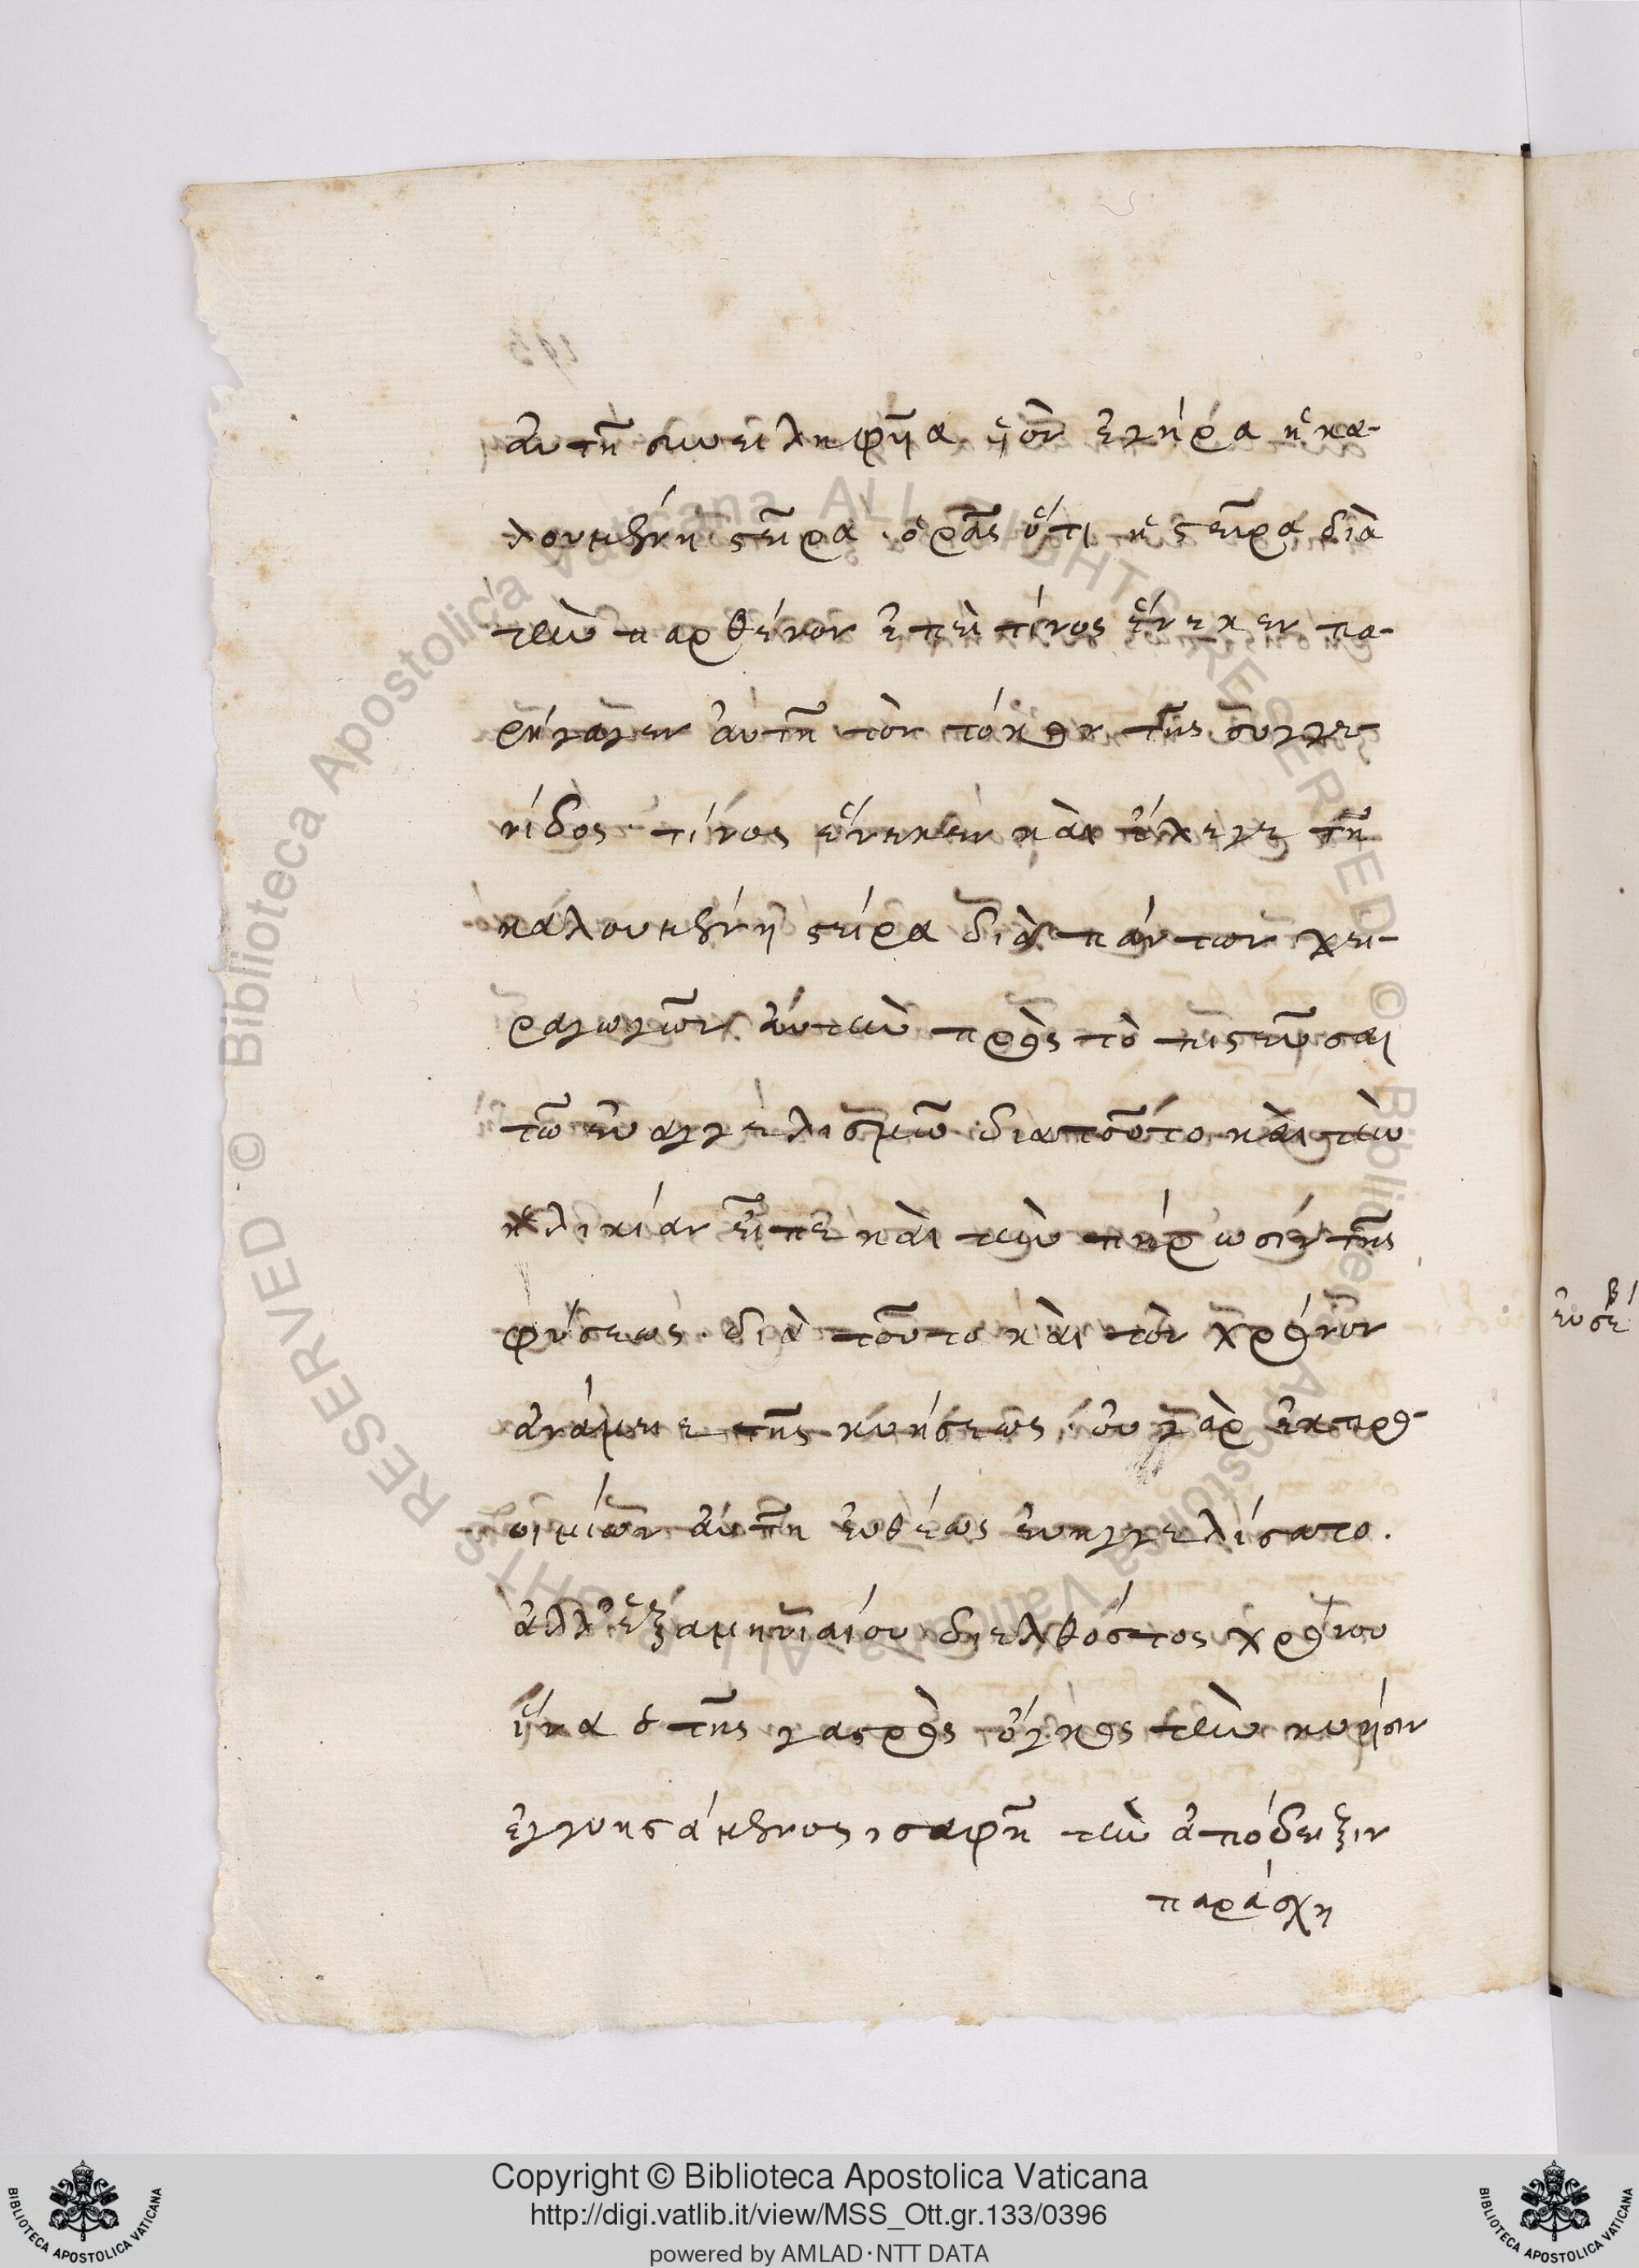 αὐτὴ συνειληφῆα υἱὸν ἐγήρα ἡ κα-
λουμένη στεῖρα. ὁρᾶς ὅτι ἡ στεῖρα διὰ
τὴν παρθένον ἐπεὶ τίνος ἕνεκεν πα-
ρήγαγεν αὐτῆ τὸν τόκον τῆς συγγε-
νίδος· τίνος ἕνεκεν καὶ ἔλεγε τῆ
καλουμένη στείρα διὰ πάντων χει-
ραγωγῶν αὐτὴν πρὸς τὸ πιστεῦσαι
τῶ εὐαγγελισμῶ· διατοῦτο καὶ τὴν
ἡλικίαν εἶπε καὶ τὴν πήρωσιν τῆς
φύσεως· διὰ τοῦτο καὶ τὸν χρόνον
ἀνάμεινε τῆς κυήσεως· οὐ γὰρ ἐκ προ-
οιμίων αὐτῆ εὐθέως εὐηγγελίσατο.
ἀλλ' ἑξαμηνιαίου διελθόντος χρόνου
ἵνα ὁ τῆς γαστρὸς ὄγκος τὴν κυῆσιν
ἐγγυησάμενος, σαφῆ τὴν ἀπόδειξιν
παράσχη
εὐσεβ
Copyright © Biblioteca Apostolica Vaticana
http://digi.vatlib.it/view/MSS_Ott.gr.133/0396
powered by AMLAD · NTT DATA
BIBLIOTECA APOSTOLICA VATICANA
BIBLIOTECA APOSTOLICA VATICANA
© Biblioteca Apostolica Vaticana ALL RIGHTS RESERVED
© Biblioteca Apostolica Vaticana ALL RIGHTS RESERVED